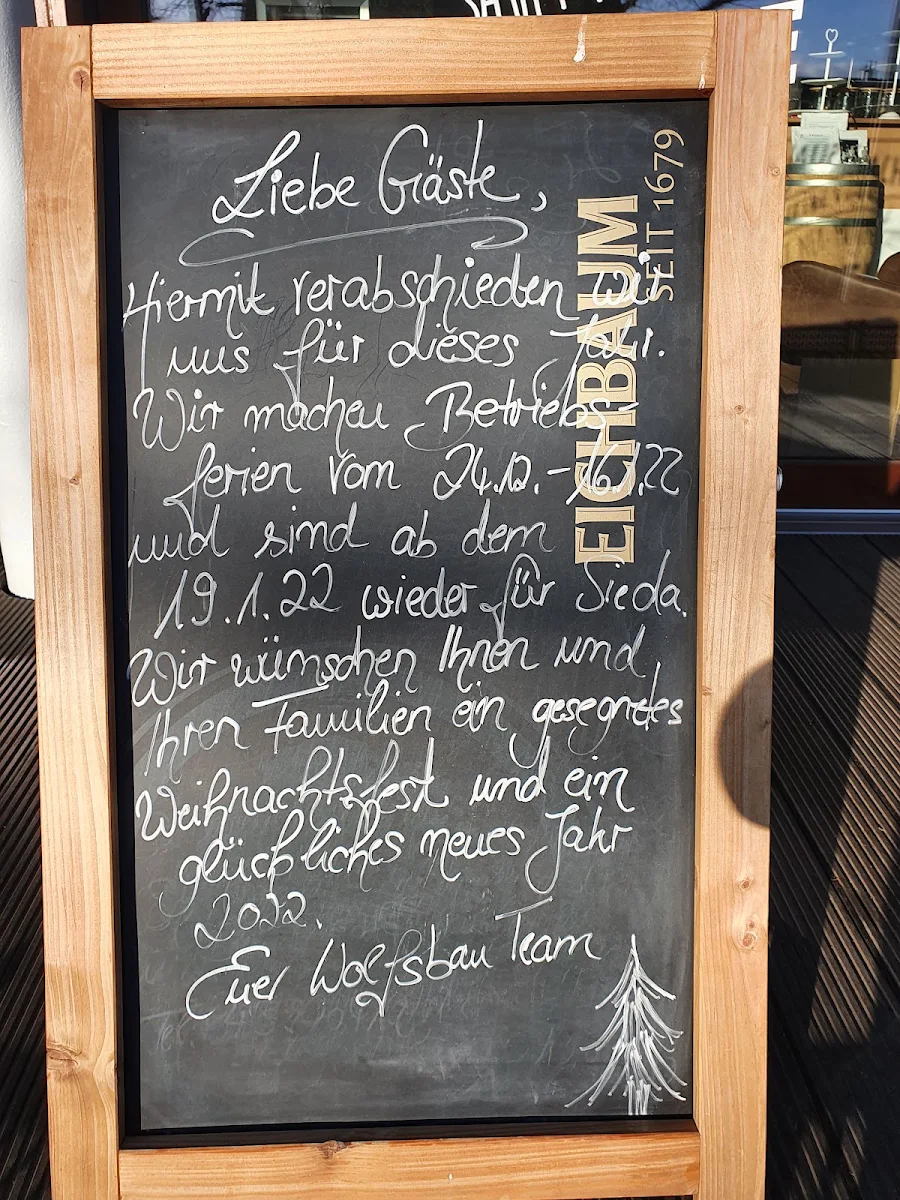 Liebe Gäste,
Hiermit verabschieden wir
uns für dieses Jahr.
Wir machen Betriebs-
ferien vom 24.12.-16.1.22
und sind ab dem
19.1.22 wieder für Sie da.
Wir wünschen Ihnen und
Ihren Familien ein gesegnetes
Weihnachtsfest und ein
glückliches neues Jahr
2022.
Euer Wolfsbau Team
EICHBAUM
SEIT 1679